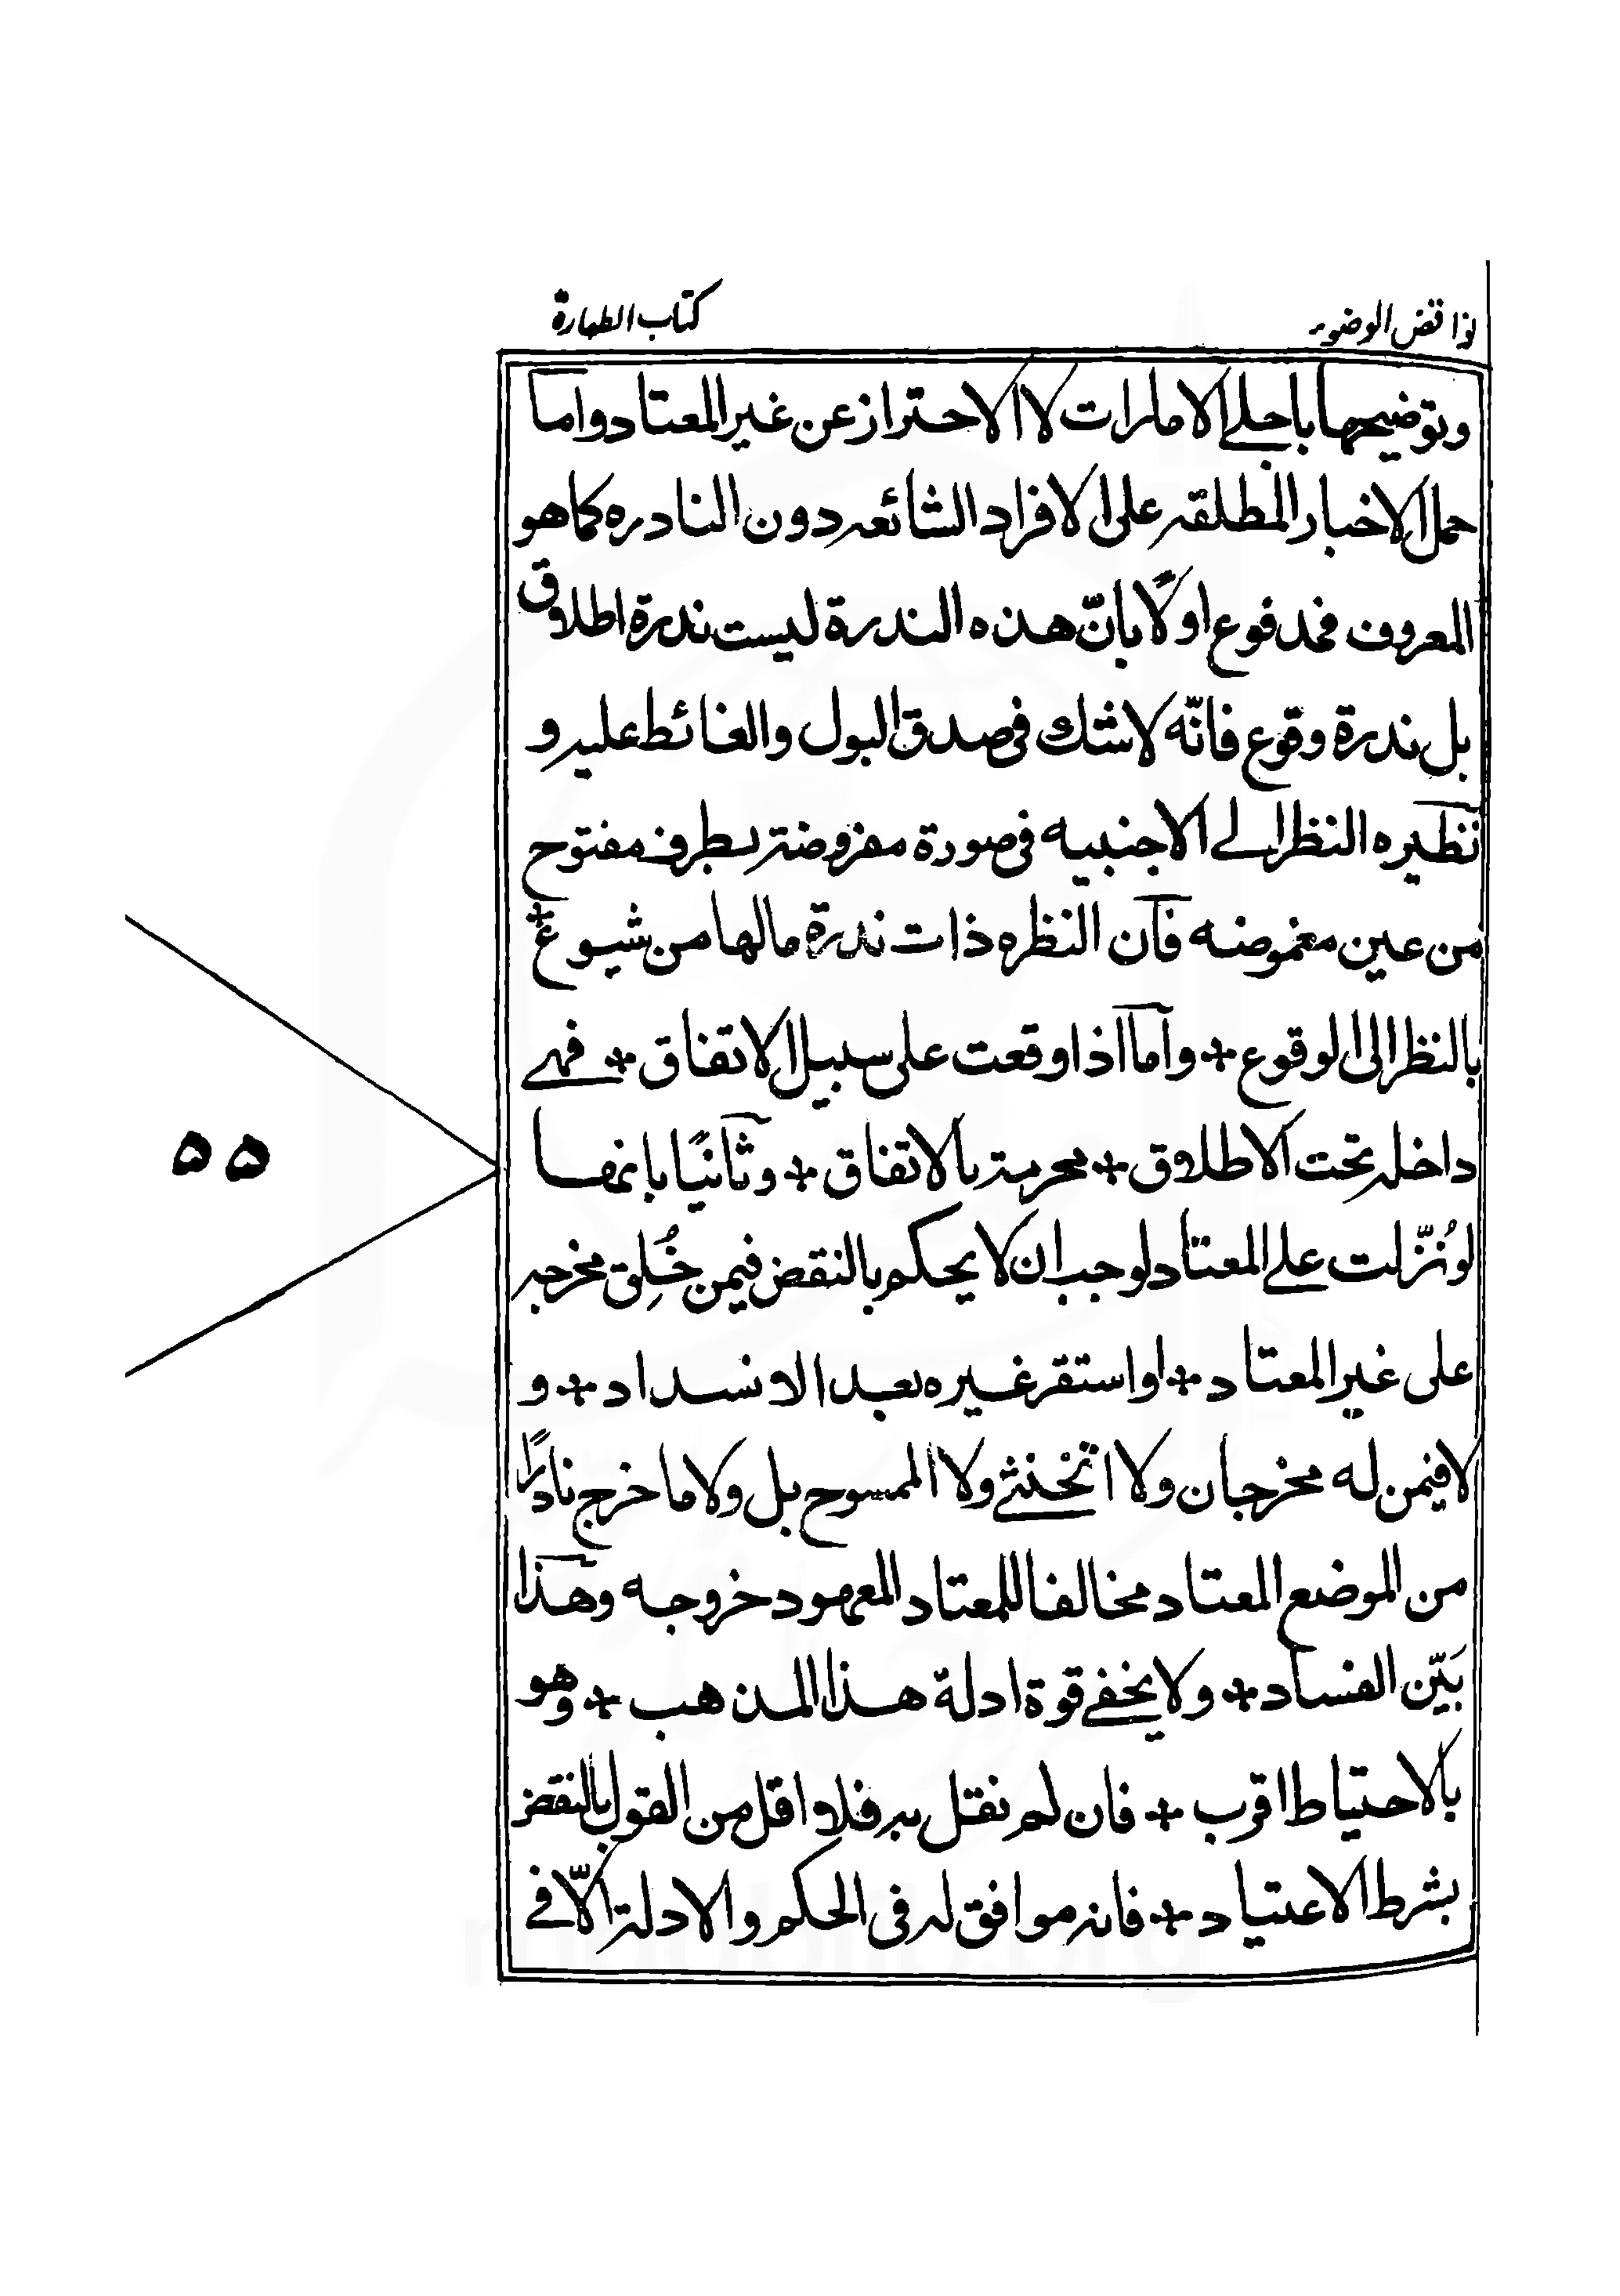 نواقض الوضوء
كتاب الطهارة
وتوضيحها باجلے الامارات لا الاحتراز عن غير المعتاد واما
حمل الاخبار المطلقه على الافراد الشائعه دون النادره كما هو
المعروف فمدفوع اولًا بانّ هذه الندرة ليست ندرة اطلاق
بل ندرة وقوع فانّه لا شك فى صدق البول والغائط عليه و
نظيره النظر الے الاجنبيه فى صورة مفروضة بطرف مفتوح
من عين مغموضه فآن النظره ذات ندرة مالها من شيوع +
بالنظر الى الوقوع + وآما اذا وقعت على سبيل الاتفاق + فهے
داخلة تحت الاطلاق + محرمة بالاتفاق + وثآنيًا بانها
لو نُزّلت علے المعتاد لوجب ان لا يحكم بالنقض فيمن خُلِق مخرجه
على غير المعتاد + او استقر غيره بعد الانسداد + و
لا فيمن له مخرجان ولا الخنثے ولا الممسوح بل ولا ما خرج نادرًا
من الموضع المعتاد مخالفا للمعتاد المعهود خروجه وهٓذا
بَيّن الفساد + ولا يخفے قوة ادلة هذا المذهب + وهو
بالاحتياط اقرب + فان لم نقل به فلا اقل من القول بالنقض
بشرط الاعتياد + فانه موافق له فى الحكم والادلة الّا فے
۵۵